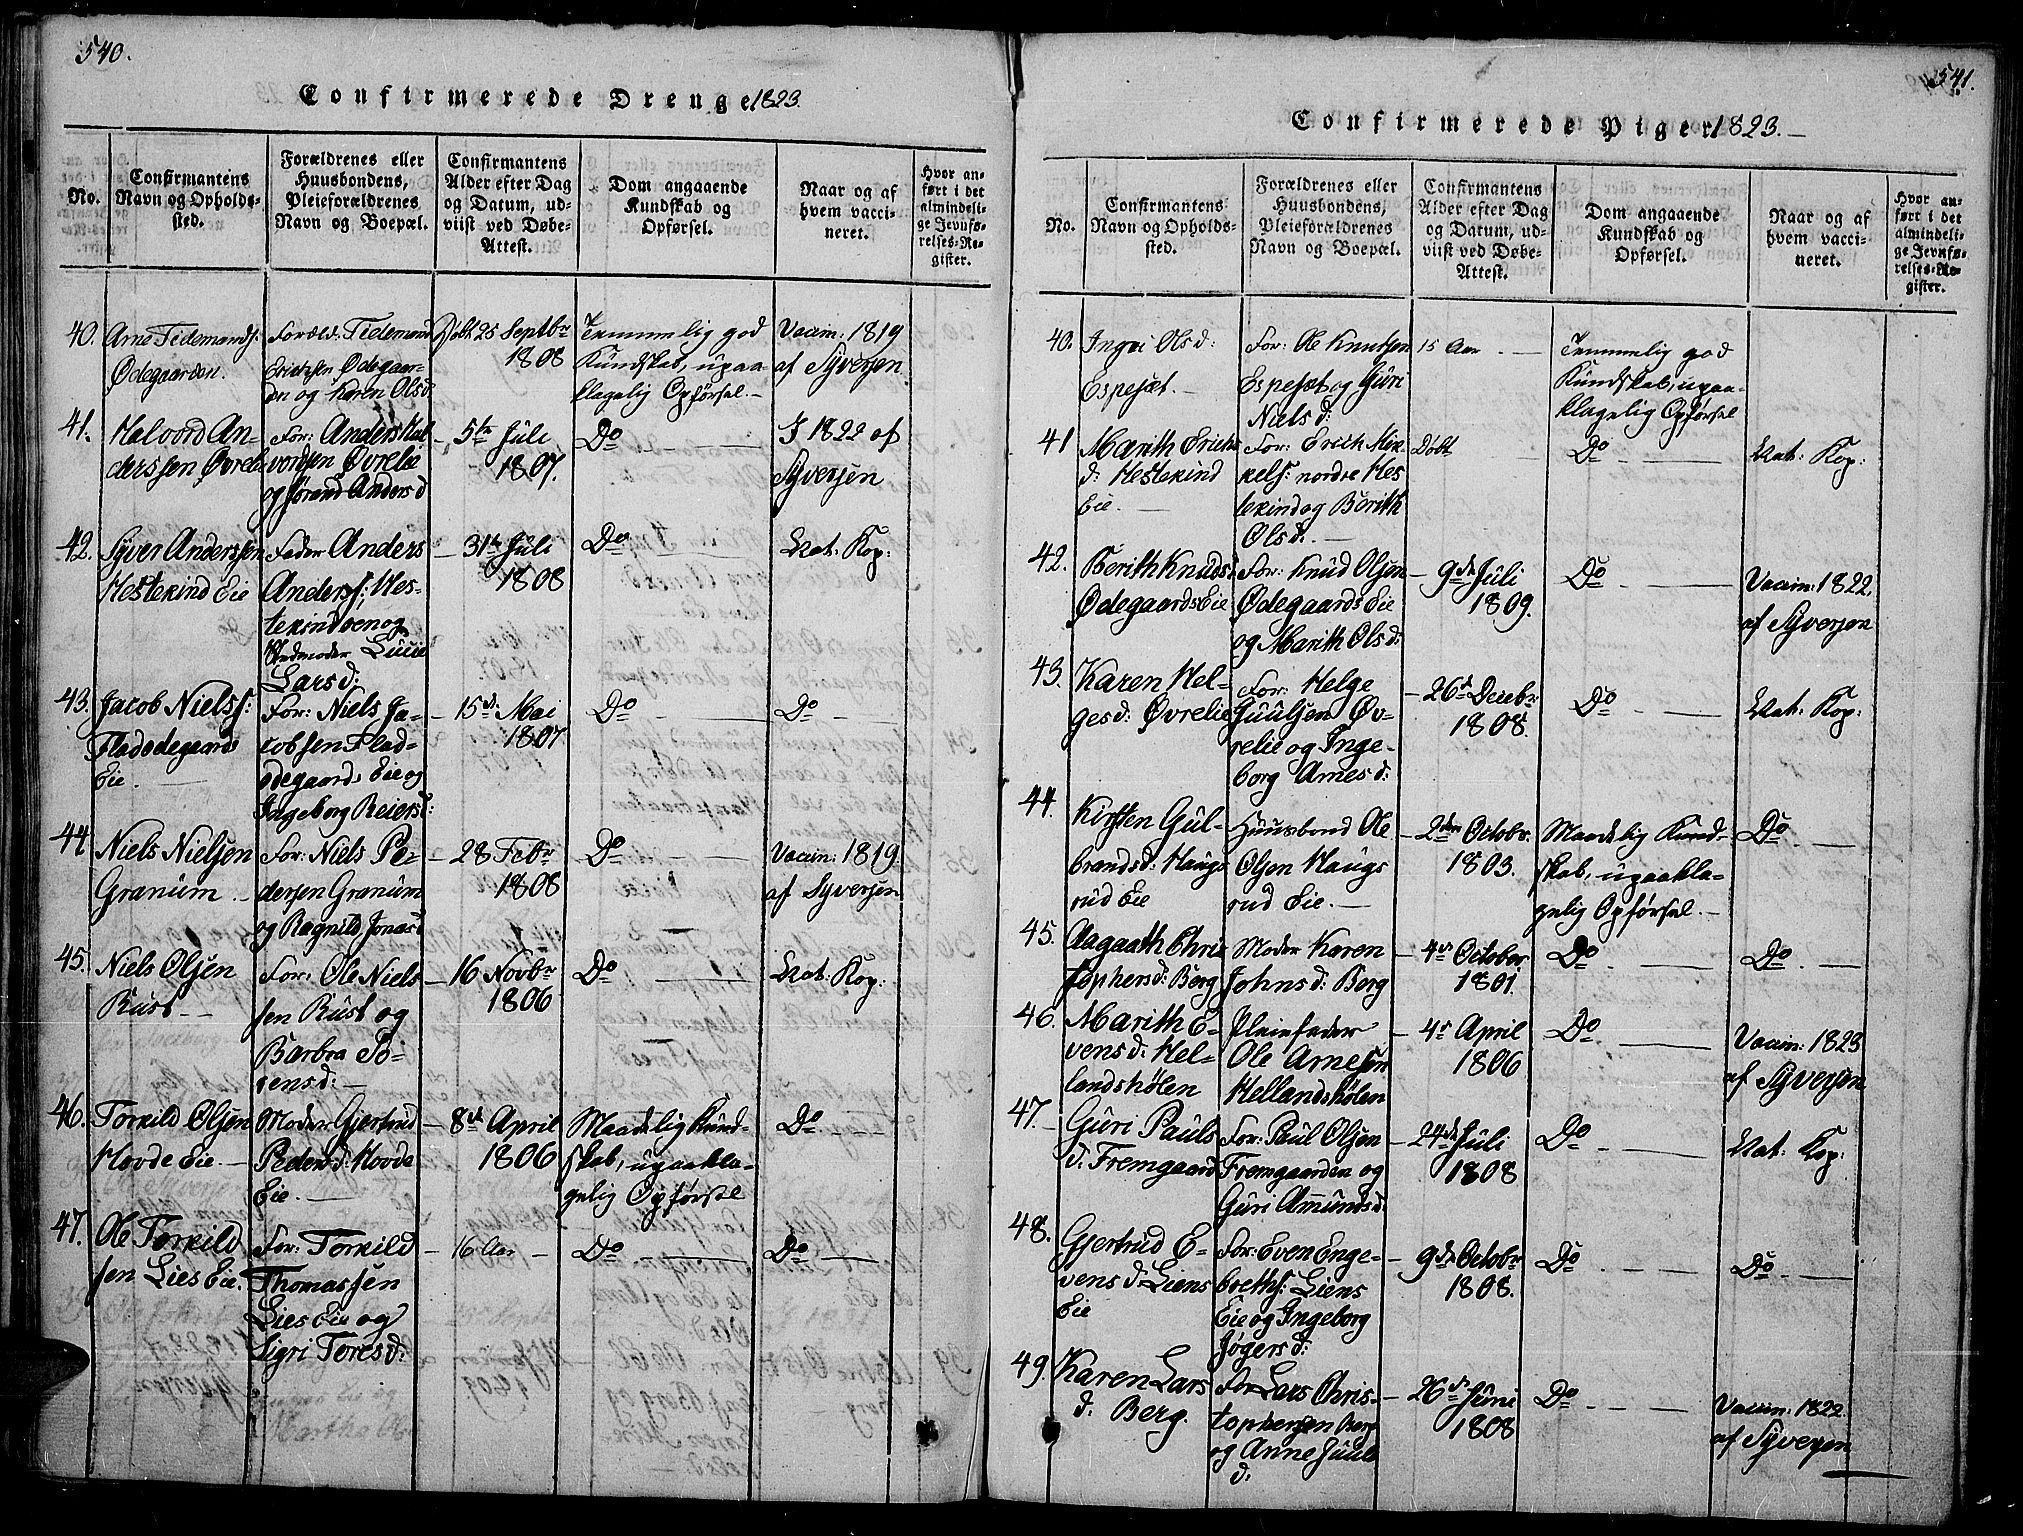 540.
Confirmerede Drenge 1823.
No.
Confirmantens
Navn og Opholds-
sted.
Forældrenes eller
Huusbondens,
Pleieforældrenes
Navn og Boepæl.
Confirmantens
Alder efter Dag
og Datum, ud-
viist ved Døbe-
Attest.
Dom angaaende
Kundskab og
Opførsel.
Naar og af
hvem vacci-
neret.
Hvor an-
ført i det
almindeli-
ge Jevnfø-
relses-Re-
gister.
40.
Arne Tidemands.
Ødegaarden.
Foræld: Tidemand
Erichsen Ødegaar-
den og Karen Olsd
Døbt 25 Septbr
1808
Temmelig god
Kundskab, upaa-
klagelig Opførsel.-
Vaccin: 1819
af Syversen
41.
Halvord An-
derssen Øvrelie
For: Anders Hal-
vordsen Øvrelie
og Jørand Andersd
- 5te Juli
1807.
Do
I 1822 af
Syversen
42.
Syver Anderssen
Hestekind Eie
Fader Anders
Anders: Hes-
tekindven og
Stedmoder Lucie
Larsd:
- 31te Juli
1808
Do
Nat: Kop:
43.
Jacob Niels:
Fladødegaards
Eie.
For: Niels Ja-
cobsen Flad-
ødegaards Eie og
Ingeborg Reiersd:
- 15de Mai
1807
Do
Do
44
Niels Nielsen
Granum. -
For: Niels Pe-
dersen Granum
og Ragnild Jonasd
- 28 Febr
1808
Do
Vaccin: 1819.
af Syversen
45.
Niels Olsen
Rust - -
For: Ole Niels-
sen Rust og
Barbra So-
rensd: -
- 16 Novbr
1806
Do
Nat: Kop:
46.
Torkild Olsen
Hovde Eie. -
Moder Gjertrud
Pedersd: Hovde
Eie. -
- 8de April
1806
Maadelig Kund-
skab, upaakla-
gelig Opførsel
Do
47.
Ole Torkild
sen Lies Eie.
For: Torkild
Thomassen
Lies Eie og
Sigri Toresd:
- 16 Aar -
Do
Do
541.
Confirmerede Piger 1823. -
No.
Confirmantens
Navn og Opholds-
sted.
Forældrenes eller
Huusbondens,
Pleieforældrenes
Navn og Boepæl.
Confirmantens
Alder efter Dag
og Datum, ud-
viist ved Døbe-
Attest.
Dom angaaende
Kundskab og
Opførsel.
Naar og af
hvem vacci-
neret.
Hvor an-
ført i det
almindeli-
ge Jevnfø-
relses-Re-
gister.
40.
Olsd:
Espeset. -
For: Ole Knutsen
Espeset og Guri
Nielsd:
15 Aar
Temmelig god
Kundskab, upaa-
klagelig Opførsel
41
Marith Erichs
d: Hestekind
Eie. -
For: Erich Mik-
kels: nordre Hes
tekind og Berith
Olsd: -
Døbt
Do
Nat: Kop:
42.
Berith Knudsd
Ødegaards Eie
For: Knud Olsen
Ødegaards Eie
og Marith Olsd:
- 9de Juli
1809.
Do
Vaccin: 1822.
af Syversen
43.
Karen Hel-
gesd: Øvrelie
For: Helge
Guulsen Øv-
relie og Inge-
borg Arnesd:
- 26de Decbr
1808.
Do
Nat: Kop:
44.
Kirsten Gul-
brandsd: Haugs
rud Eie
Huusbond Ole
Olsen Haugs
rud Eie. -
- 2den Octobr.
1803.
Maadelig Kund-
skab, upaakla-
gelig Opførsel. -
Do
45.
Aagaath Chris
tophersd: Berg
Moder Karen
Johnsd: Berg
- 4de October
1801.
Do
Do
46.
Marith E-
vensd: Hel-
landshølen
Pleiefader
Ole Arnesen
Hellandshølen
- 4de April
1806
Do
Vaccin: 1823
af Syversen
47.
Guri Pauls
d: Fremgaard
For: Paul Olsen
Fremgaarden og
Guri Amundsd.
- 24de Juli
1808
Do
Nat: Kop:
48.
Gjertrud E-
vensd: Liens
Eie
For: Even Enge-
breths: Liens
Eie og Ingeborg
Jøgersd:
- 9de Octobr
1808.
Do
Do
49.
Karen Lars
d: Berg.
For Lars Chris-
tophersen Berg
og Anne Juuls
d:
- 26de Juni
1808
Do
Vaccin: 1822
af Syversen